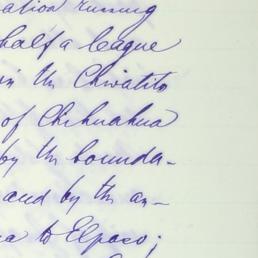 ation running
half a league
in the Chivatito
of Chihuahua
by the bounda-
and by the an-
a to Elpaso;